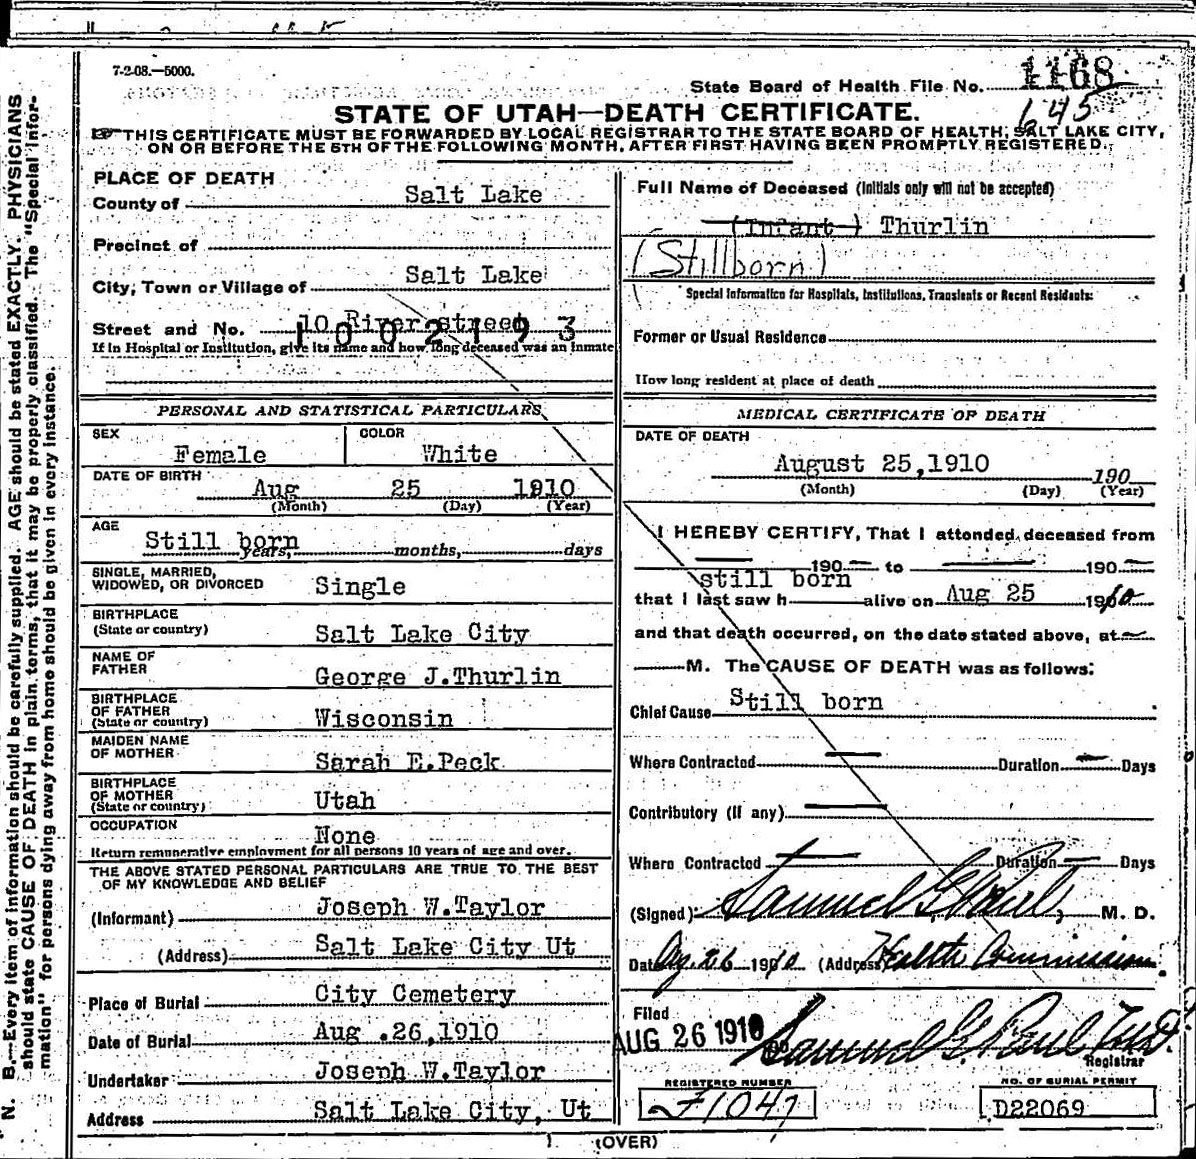 7-2-08.—5000.
State Board of Health File No. 1168
645
STATE OF UTAH—DEATH CERTIFICATE.
THIS CERTIFICATE MUST BE FORWARDED BY LOCAL REGISTRAR TO THE STATE BOARD OF HEALTH, SALT LAKE CITY,
ON OR BEFORE THE 5TH OF THE FOLLOWING MONTH, AFTER FIRST HAVING BEEN PROMPTLY REGISTERED.
N. B.—Every item of information should be carefully supplied. AGE should be stated EXACTLY. PHYSICIANS
should state CAUSE OF DEATH in plain terms, that it may be properly classified. The "Special Infor-
mation" for persons dying away from home should be given in every instance.
PLACE OF DEATH
County of Salt Lake
Precinct of
City, Town or Village of Salt Lake
Street and No. 10 River street
1002193
If in Hospital or Institution, give its name and how long deceased was an inmate
PERSONAL AND STATISTICAL PARTICULARS
SEX Female COLOR White
DATE OF BIRTH Aug 25 1910
(Month) (Day) (Year)
AGE Still born years, months, days
SINGLE, MARRIED,
WIDOWED, OR DIVORCED Single
BIRTHPLACE
(State or country) Salt Lake City
NAME OF
FATHER George J.Thurlin
BIRTHPLACE
OF FATHER
(State or country) Wisconsin
MAIDEN NAME
OF MOTHER Sarah E.Peck
BIRTHPLACE
OF MOTHER
(State or country) Utah
OCCUPATION None
Return remunerative employment for all persons 10 years of age and over.
THE ABOVE STATED PERSONAL PARTICULARS ARE TRUE TO THE BEST
OF MY KNOWLEDGE AND BELIEF
(Informant) Joseph W.Taylor
(Address) Salt Lake City Ut
Place of Burial City Cemetery
Date of Burial Aug .26,1910
Undertaker Joseph W.Taylor
Address Salt Lake City, Ut
Full Name of Deceased (Initials only will not be accepted)
(Infant) Thurlin
(Stillborn)
Special Information for Hospitals, Institutions, Transients or Recent Residents:
Former or Usual Residence
How long resident at place of death
MEDICAL CERTIFICATE OF DEATH
DATE OF DEATH
August 25,1910 190
(Month) (Day) (Year)
I HEREBY CERTIFY, That I attended deceased from
190 to 190
still born
that I last saw h alive on Aug 25 1910
and that death occurred, on the date stated above, at
M. The CAUSE OF DEATH was as follows:
Chief Cause Still born
Where Contracted Duration Days
Contributory (if any)
Where Contracted Duration Days
(Signed) Samuel G. Paul, M. D.
Date Ag. 26 1910 (Address) Health Commission
Filed
AUG 26 1910 Samuel G. Paul
Registrar
REGISTERED NUMBER
F1047
NO. OF BURIAL PERMIT
D22069
(OVER)